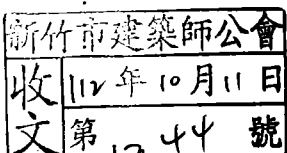 新竹市建築師公會
收文
112年10月11日
第 44 號